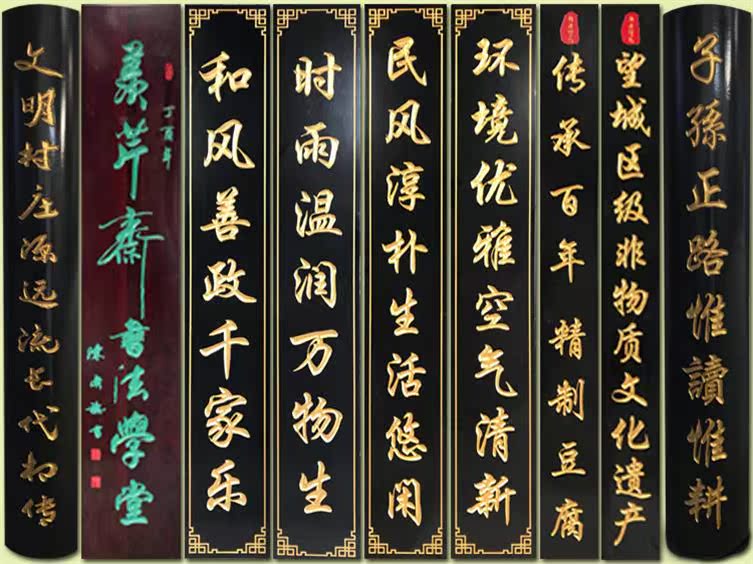 文明村庄源远流长代相传
丁酉年
芹斋書法學堂
和风善政千家乐
时雨温润万物生
民风淳朴生活悠闲
环境优雅空气清新
传承百年精制豆腐
望城区级非物质文化遗产
子孫正路惟讀惟耕